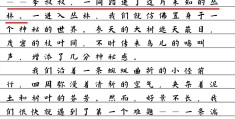 一同踏进了这片未知的丛
林。一进入丛林，我们就仿佛置身于一
个神秘的世界。参天的大树遮天蔽日，
茂密的枝叶间，不时传来鸟儿的鸣叫
声，增添了几分神秘感。
我们沿着一条蜿蜒曲折的小径前
行，四周弥漫着清新的空气，夹杂着泥
土和树叶的芬芳。然而，好景不长，我
们很快就遇到了第一个难题——一条湍